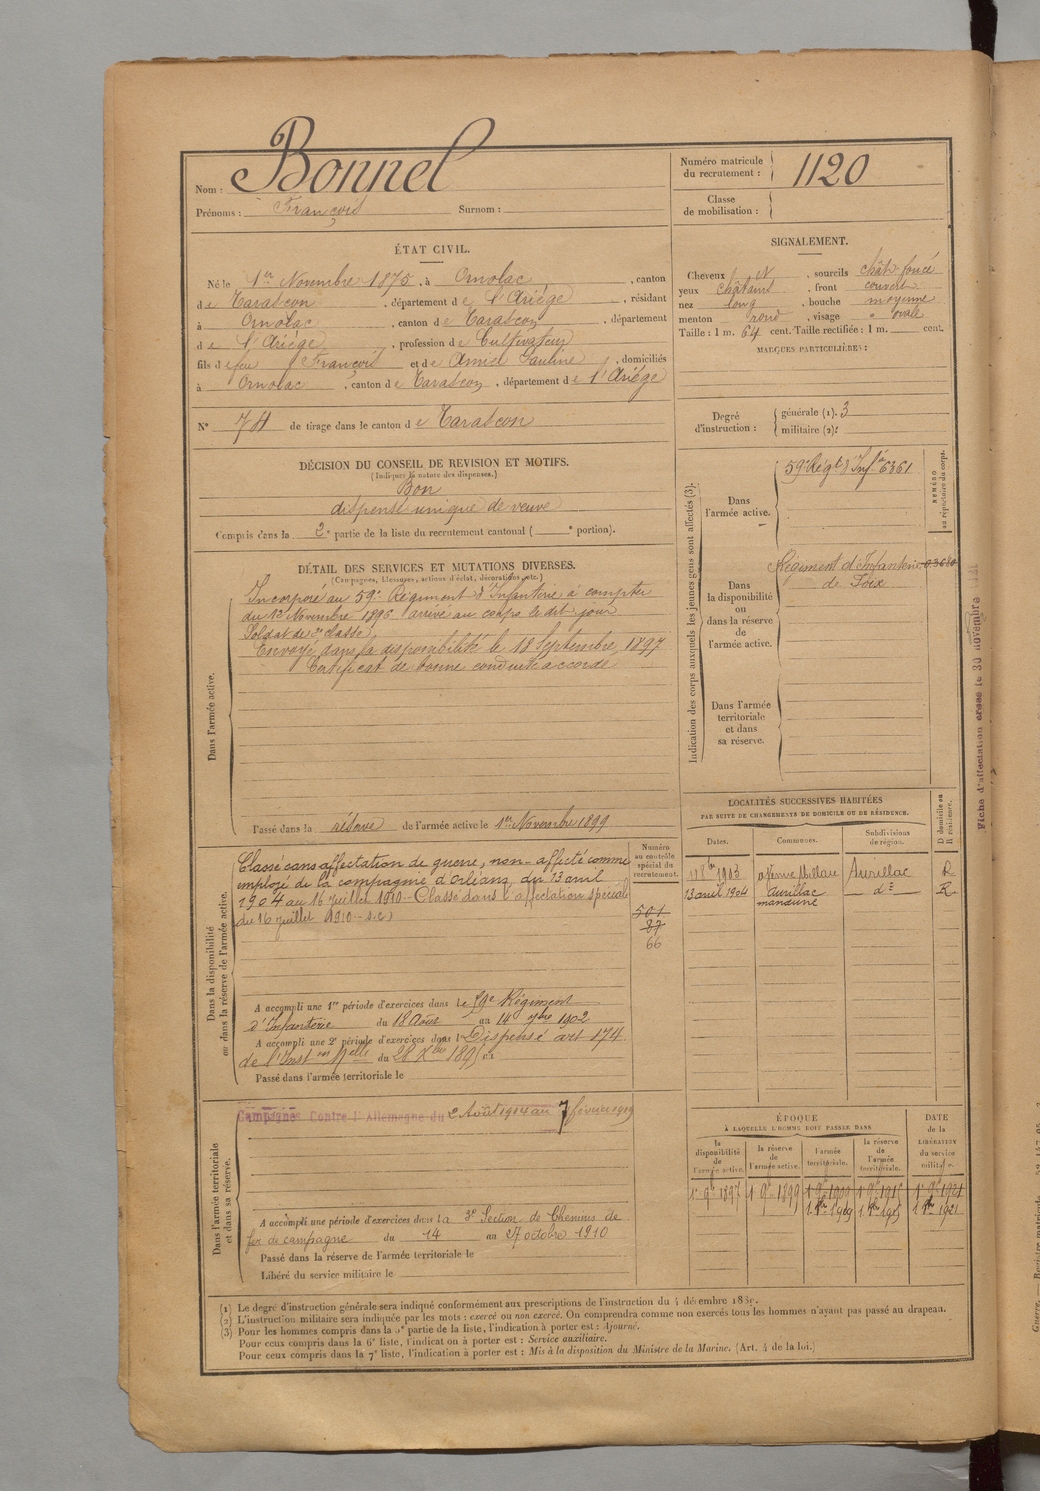 Nom : Bonnel
Prénoms : François Surnom :
Numéro matricule du recrutement : 1120
Classe de mobilisation :
ÉTAT CIVIL.
Né le 1er Novembre 1875, à Ornolac, canton
de Tarascon, département de l'Ariége, résidant
à Ornolac, canton de Tarascon, département
de l'Ariége, profession de Cultivateur
fils de feu François et de Amiel Pauline, domiciliés
à Ornolac, canton de Tarascon, département de l'Ariége
N° 74 de tirage dans le canton de Tarascon
SIGNALEMENT.
Cheveux et, sourcils chât. foncé
yeux châtains, front couvert
nez long, bouche moyenne
menton rond, visage ovale
Taille : 1 m. 64 cent. Taille rectifiée : 1 m. cent.
MARQUES PARTICULIÈRES :
Degré d'instruction : générale (1). 3
militaire (2):
DÉCISION DU CONSEIL DE REVISION ET MOTIFS.
(Indiquer la nature des dispenses.)
Bon
dispensé unique de veuve
Compris dans la 2e partie de la liste du recrutement cantonal ( e portion).
DÉTAIL DES SERVICES ET MUTATIONS DIVERSES.
(Campagnes, blessures, actions d'éclat, décorations, etc.)
Dans l'armée active.
Incorporé au 59e Régiment d'Infanterie à compter
du Novembre 1896 arrivé au corps le dit jour
Soldat de 2e classe.
Envoyé dans la disponibilité le 18 Septembre 1897
Certificat de bonne conduite accordé
Passé dans la réserve de l'armée active le 1er Novembre 1899
Indication des corps auxquels les jeunes gens sont affectés (3).
NUMÉRO au répertoire du corps.
Dans l'armée active.
59e Régt d'Infie 6361
Dans la disponibilité ou dans la réserve de l'armée active.
Régiment d'Infanterie
de Foix
Dans l'armée territoriale et dans sa réserve.
Fiche d'affectation créée le 30 novembre
Dans la disponibilité ou dans la réserve de l'armée active.
Numéro au contrôle spécial du recrutement.
Classé sans affectation de guerre, non-affecté comme
employé de la compagnie d'Orléans, du 13 avril
1904 au 16 juillet 1910 - Classé dans l'affectation spéciale
du 16 juillet 1910
501
87
66
A accompli une 1re période d'exercices dans le 59e Régiment
d'Infanterie du 18 Août au 14 7bre 1902
A accompli une 2e période d'exercices dans l Dispensé art 174
de l'Inston Melle du 28 Xbre 1895
Passé dans l'armée territoriale le
LOCALITÉS SUCCESSIVES HABITÉES
PAR SUITE DE CHANGEMENTS DE DOMICILE OU DE RÉSIDENCE.
Dates. Communes. Subdivisions de région. D domicile ou R résidence.
1903 Aurillac R
13 avril 1904 Aurillac d° R
Dans l'armée territoriale et dans sa réserve.
Campagnes Contre l'Allemagne du 2 Août 1914 au 7 février 1919
A accompli une période d'exercices dans la 3e Section de Chemins de
fer de campagne du 14 au 27 octobre 1910
Passé dans la réserve de l'armée territoriale le
Libéré du service militaire le
ÉPOQUE
À LAQUELLE L'HOMME DOIT PASSER DANS
DATE de la LIBÉRATION du service militaire.
la disponibilité de l'armée active. la réserve de l'armée active. l'armée territoriale. la réserve de l'armée territoriale.
1er 9bre 1897 1er 9bre 1899 1921
1909 1915 1921
(1) Le degré d'instruction générale sera indiqué conformément aux prescriptions de l'instruction du 4 décembre
(2) L'instruction militaire sera indiquée par les mots : exercé ou non exercé. On comprendra comme non exercés tous les hommes n'ayant pas passé au drapeau.
(3) Pour les hommes compris dans la 5e partie de la liste, l'indication à porter est : Ajourné.
Pour ceux compris dans la 6e liste, l'indication à porter est : Service auxiliaire.
Pour ceux compris dans la 7e liste, l'indication à porter est : Mis à la disposition du Ministre de la Marine. (Art. 4 de la loi.)